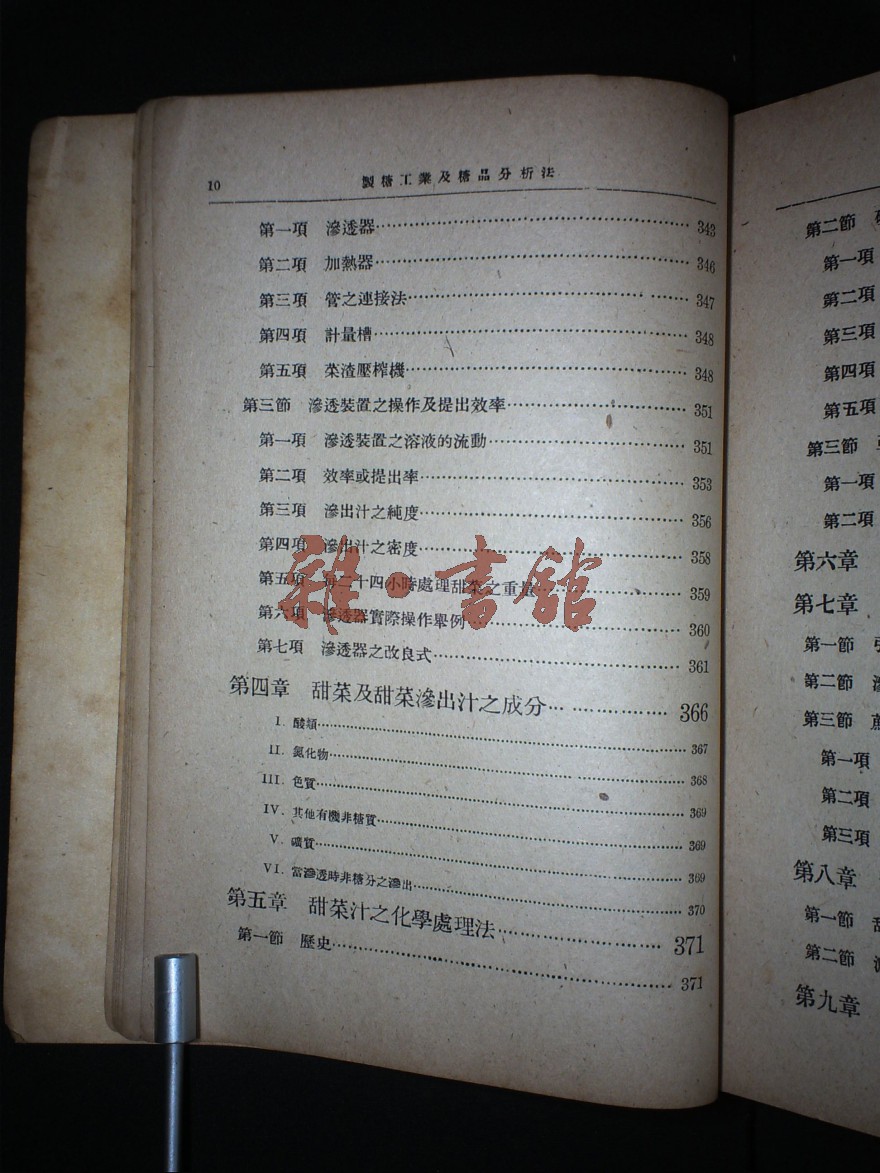 10 製糖工業及糖品分析法
第一項 滲透器 343
第二項 加熱器 346
第三項 管之連接法 347
第四項 計量槽 348
第五項 菜渣壓榨機 348
第三節 滲透裝置之操作及提出效率 351
第一項 滲透裝置之溶液的流動 351
第二項 效率或提出率 353
第三項 滲出汁之純度 356
第四項 滲出汁之密度 358
第五項 每二十四小時處理甜菜之重量 359
第六項 滲透器實際操作舉例 360
第七項 滲透器之改良式 361
第四章 甜菜及甜菜滲出汁之成分 366
I. 酸類 367
II. 氮化物 368
III. 色質 369
IV. 其他有機非糖質 369
V. 礦質 369
VI. 當滲透時非糖分之滲出 370
第五章 甜菜汁之化學處理法 371
第一節 歷史 371
雜·書館
第二節
第一項
第二項
第三項
第四項
第五項
第三節
第一項
第二項
第六章
第七章
第一節
第二節
第三節
第一項
第二項
第三項
第八章
第一節
第二節
第九章